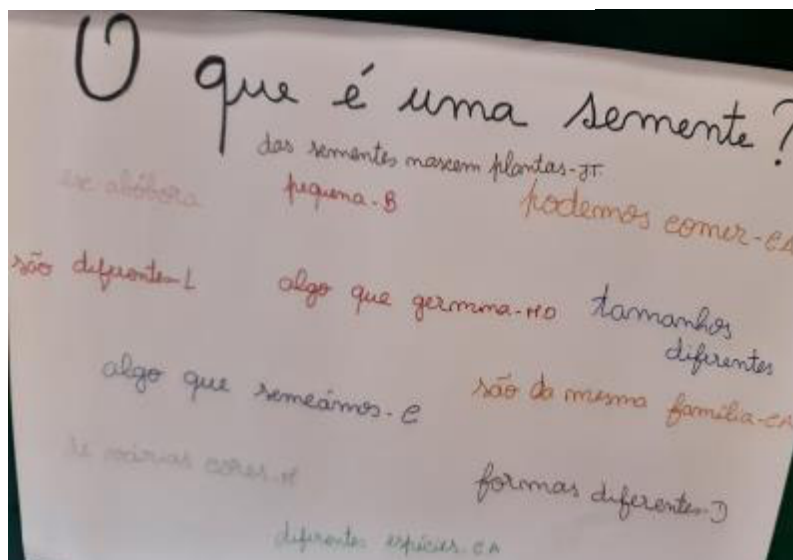 O que é uma semente?
das sementes nascem plantas-JT
abóbora
pequena-B
podemos comer-CA
são diferentes-L
algo que germina-MD
tamanhos
diferentes
algo que semeámos-C
são da mesma família-CA
várias cores-M
formas diferentes-D
diferentes espécies-CA